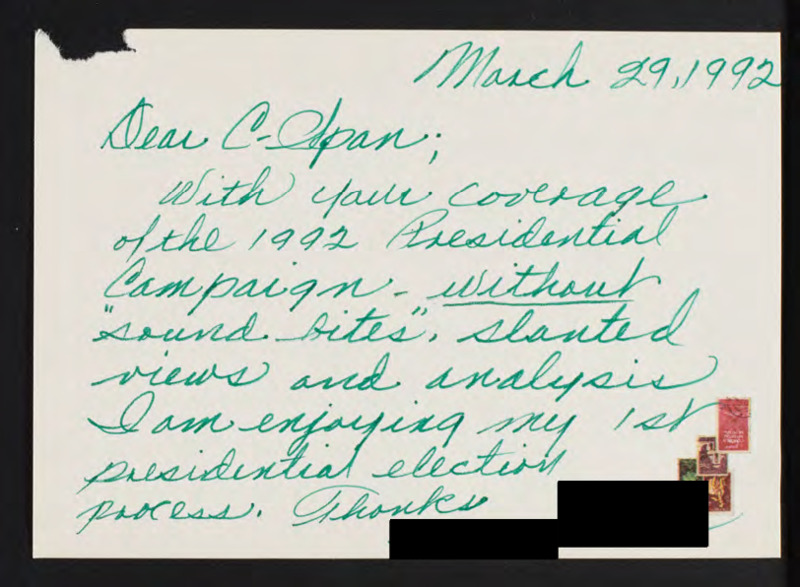 March 29, 1992
Dear C-Span;
With your coverage
of the 1992 Presidential
Campaign - without
"sound bites", slanted
views and analysis
I am enjoying my 1st
presidential election
process. Thanks